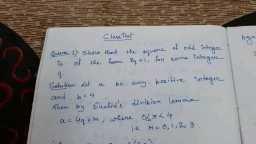 Class Test
Question 1) Show that the square of odd integer
is of the form 8q+1, for some integer
q.
Solution Let a be any positive integer
and b = 4
Then by Euclid's division lemma
a = 4q+r, where 0≤r<4
i.e r = 0, 1, 2, 3